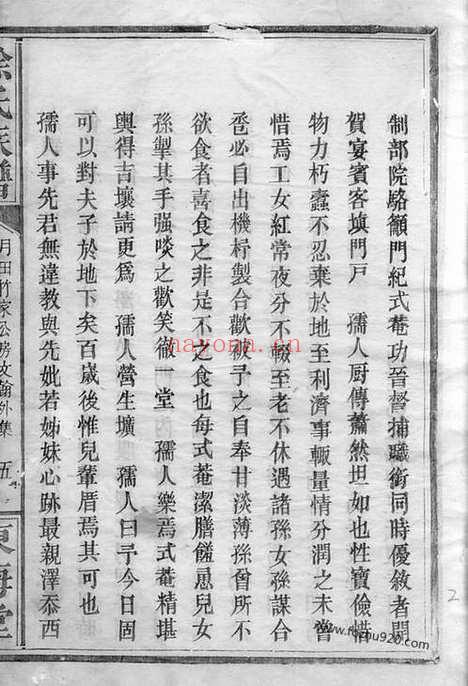 制部院駱籲門紀式菴功晉督捕職銜同時優敘者開
賀宴賓客填門戶 孺人厨傳蕭然坦如也性寶儉惜
物力朽蠹不忍棄於地至利濟事輒量情分潤之未嘗
惜焉工女紅常夜分不輟至老不休遇諸孫女孫謀合
巹必自出機杼製合歡被予之自奉甘淡薄孫嘗所不
欲食者善食之非是不之食也每式菴潔膳饈嵒兒女
孫掣其手强啖之歡笑徹一堂 孺人樂焉式菴精堪
輿得吉壤請更爲 孺人營生壙 孺人曰予今日固
可以對夫子於地下矣百歲後惟兒輩厝焉其可也
孺人事先君無違教與先妣若姊妹心跡最親澤忝西
徐氏族譜
月田竹家公房文翰外集
五
東海堂
hayona.cn
www.foxue920.com
2